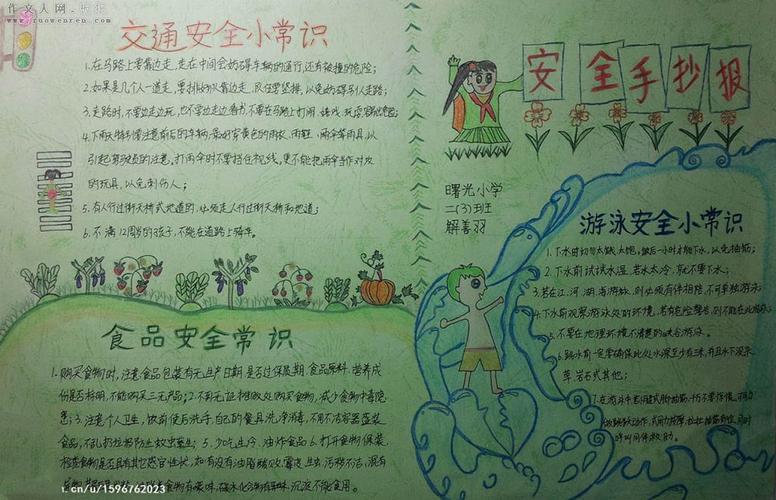 作文人网
交通安全小常识
1.在马路上要靠边走,走在中间会妨碍车辆的通行,还有被撞的危险;
2.如果是几个人一道走,要排好队靠边走,队伍要竖排,以免妨碍别人走路;
3.走路时,不要边走边玩,也不要边走边看书,不要在马路上打闹
4.下雨天特别要注意前后的车辆,最好穿黄色的雨衣、雨鞋、雨伞等雨具,以
引起驾驶员的注意。打雨伞时不要挡住视线,更不能把雨伞当作对攻
的玩具,以免刺伤人;
5.有人行过街天桥或地道的,必须走人行过街天桥和地道;
6.不满12周岁的孩子,不能在道路上骑车。
安全手抄报
曙光小学
二(3)班
解善羽
游泳安全小常识
1.下水时切勿太饿、太饱,饭后一小时才能下水,以免抽筋;
2.下水前试试水温,若水太冷,就不要下水;
3.若在江、河、湖、海游泳,则必须有伴相陪,不可单独游泳;
4.下水前观察游泳处的环境,若有危险警告,则不能在此游泳;
5.不要在地理环境不清楚的峡谷游泳。
6.跳水前一定要确保此处水深至少有三米,并且水下没杂
草岩石或其他;
食品安全常识
1.购买食物时,注意食品包装有无生产日期,是否过保质期,食品原料,营养成
份是否标明,不能购买三无产品;2.不到无证
购买食物,减少食物中毒隐
患;3.注意个人卫生,饭前便后洗手,自己的餐具洗净消毒,不用不洁容器盛装
食品,不乱扔垃圾防止蚊蝇
5.少吃
油炸食品
t.cn/u/1596762023